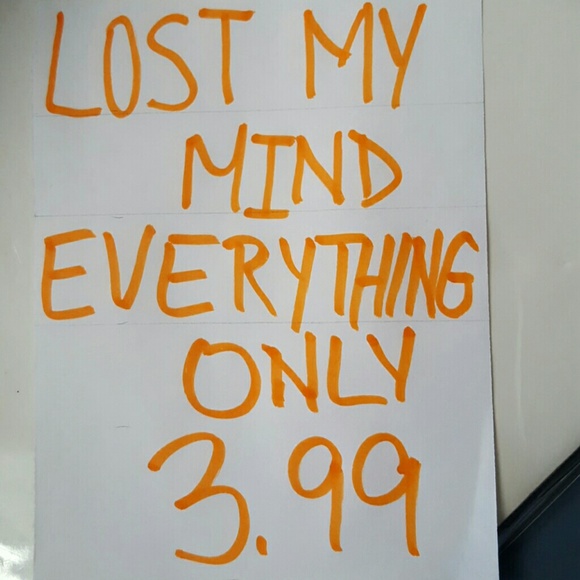 LOST MY
MIND
EVERYTHING
ONLY
3.99